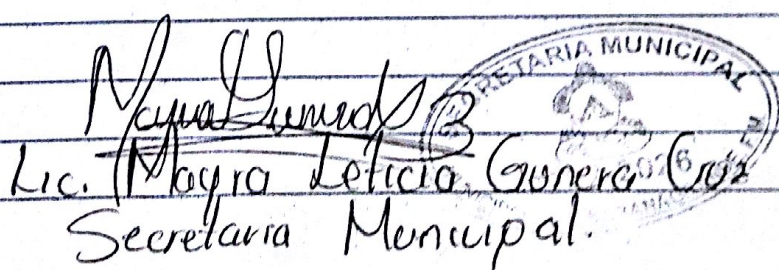 SECRETARIA MUNICIPAL
Lic. Mayra Leticia Gunera Cruz
Secretaria Municipal.